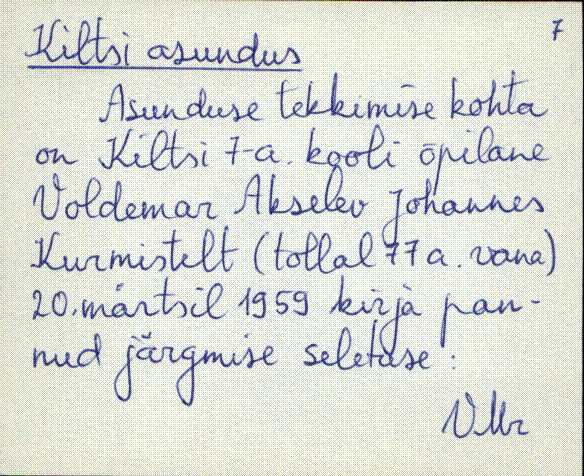 7
Kiltsi asundus
Asunduse tekkimise kohta
on Kiltsi 7-a. kooli õpilane
Voldemar Akselev Johannes
Kurmistelt (tollal 77 a. vana)
20. märtsil 1959 kirja pan-
nud järgmise seletuse: